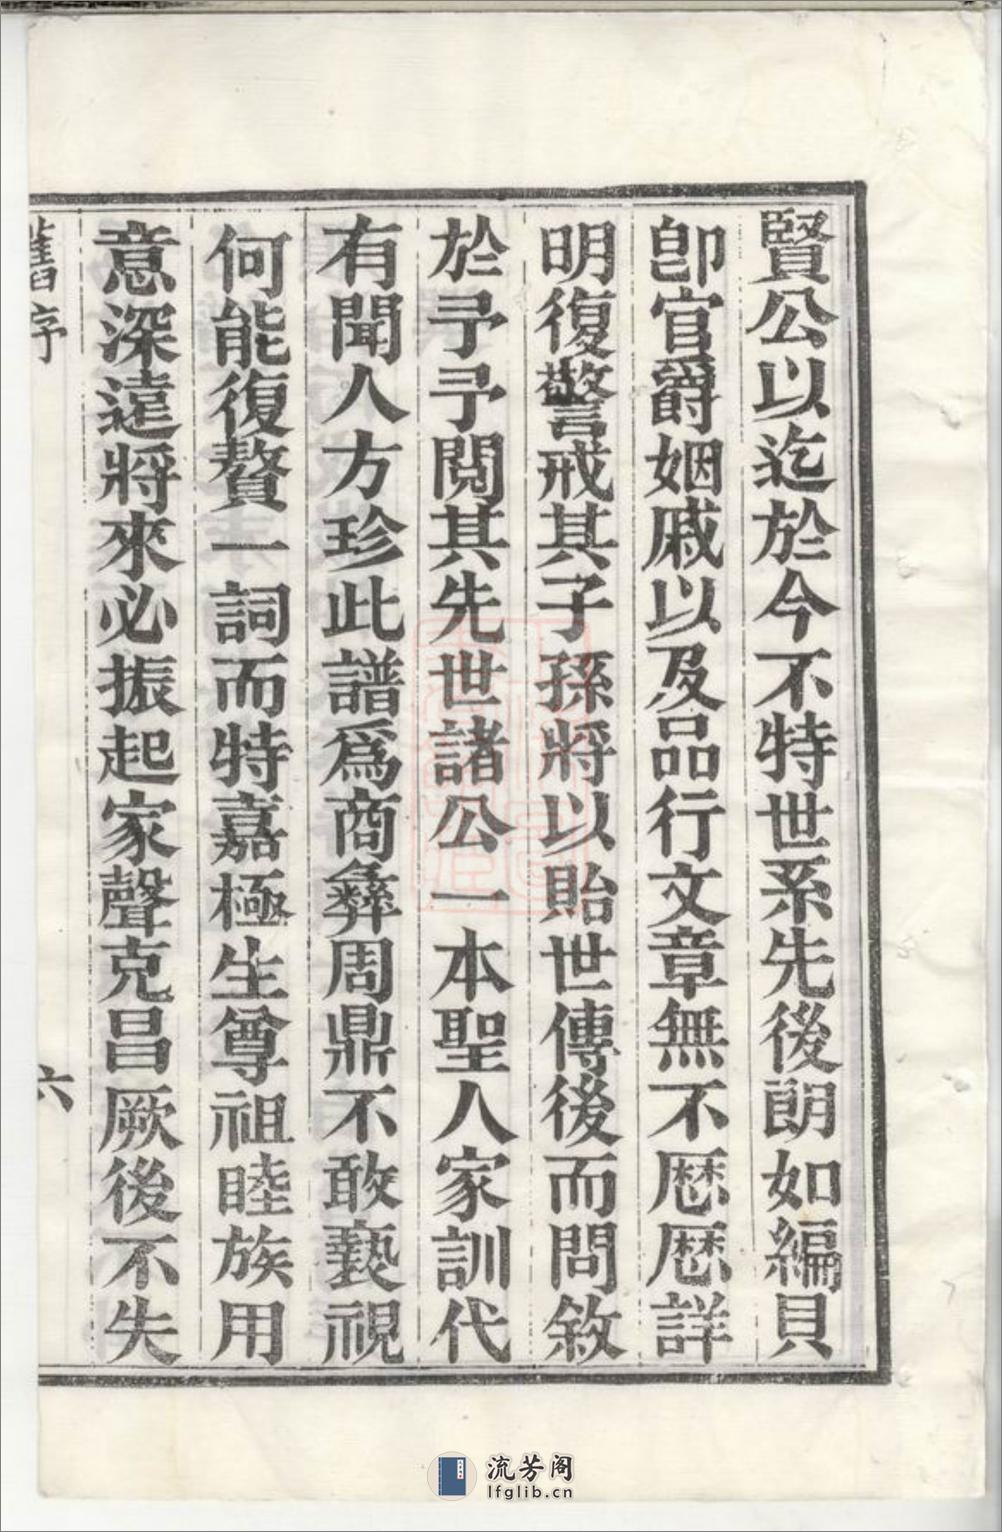 賢公以迄於今不特世系先後朗如編貝
卽官爵姻戚以及品行文章無不厯厯詳
明復警戒其子孫將以貽世傳後而問敘
於予予閱其先世諸公一本聖人家訓代
有聞人方珍此譜爲商彝周鼎不敢褻視
何能復贅一詞而特嘉極生尊祖睦族用
意深遠將來必振起家聲克昌厥後不失
舊序
六
流芳阁
lfglib.cn